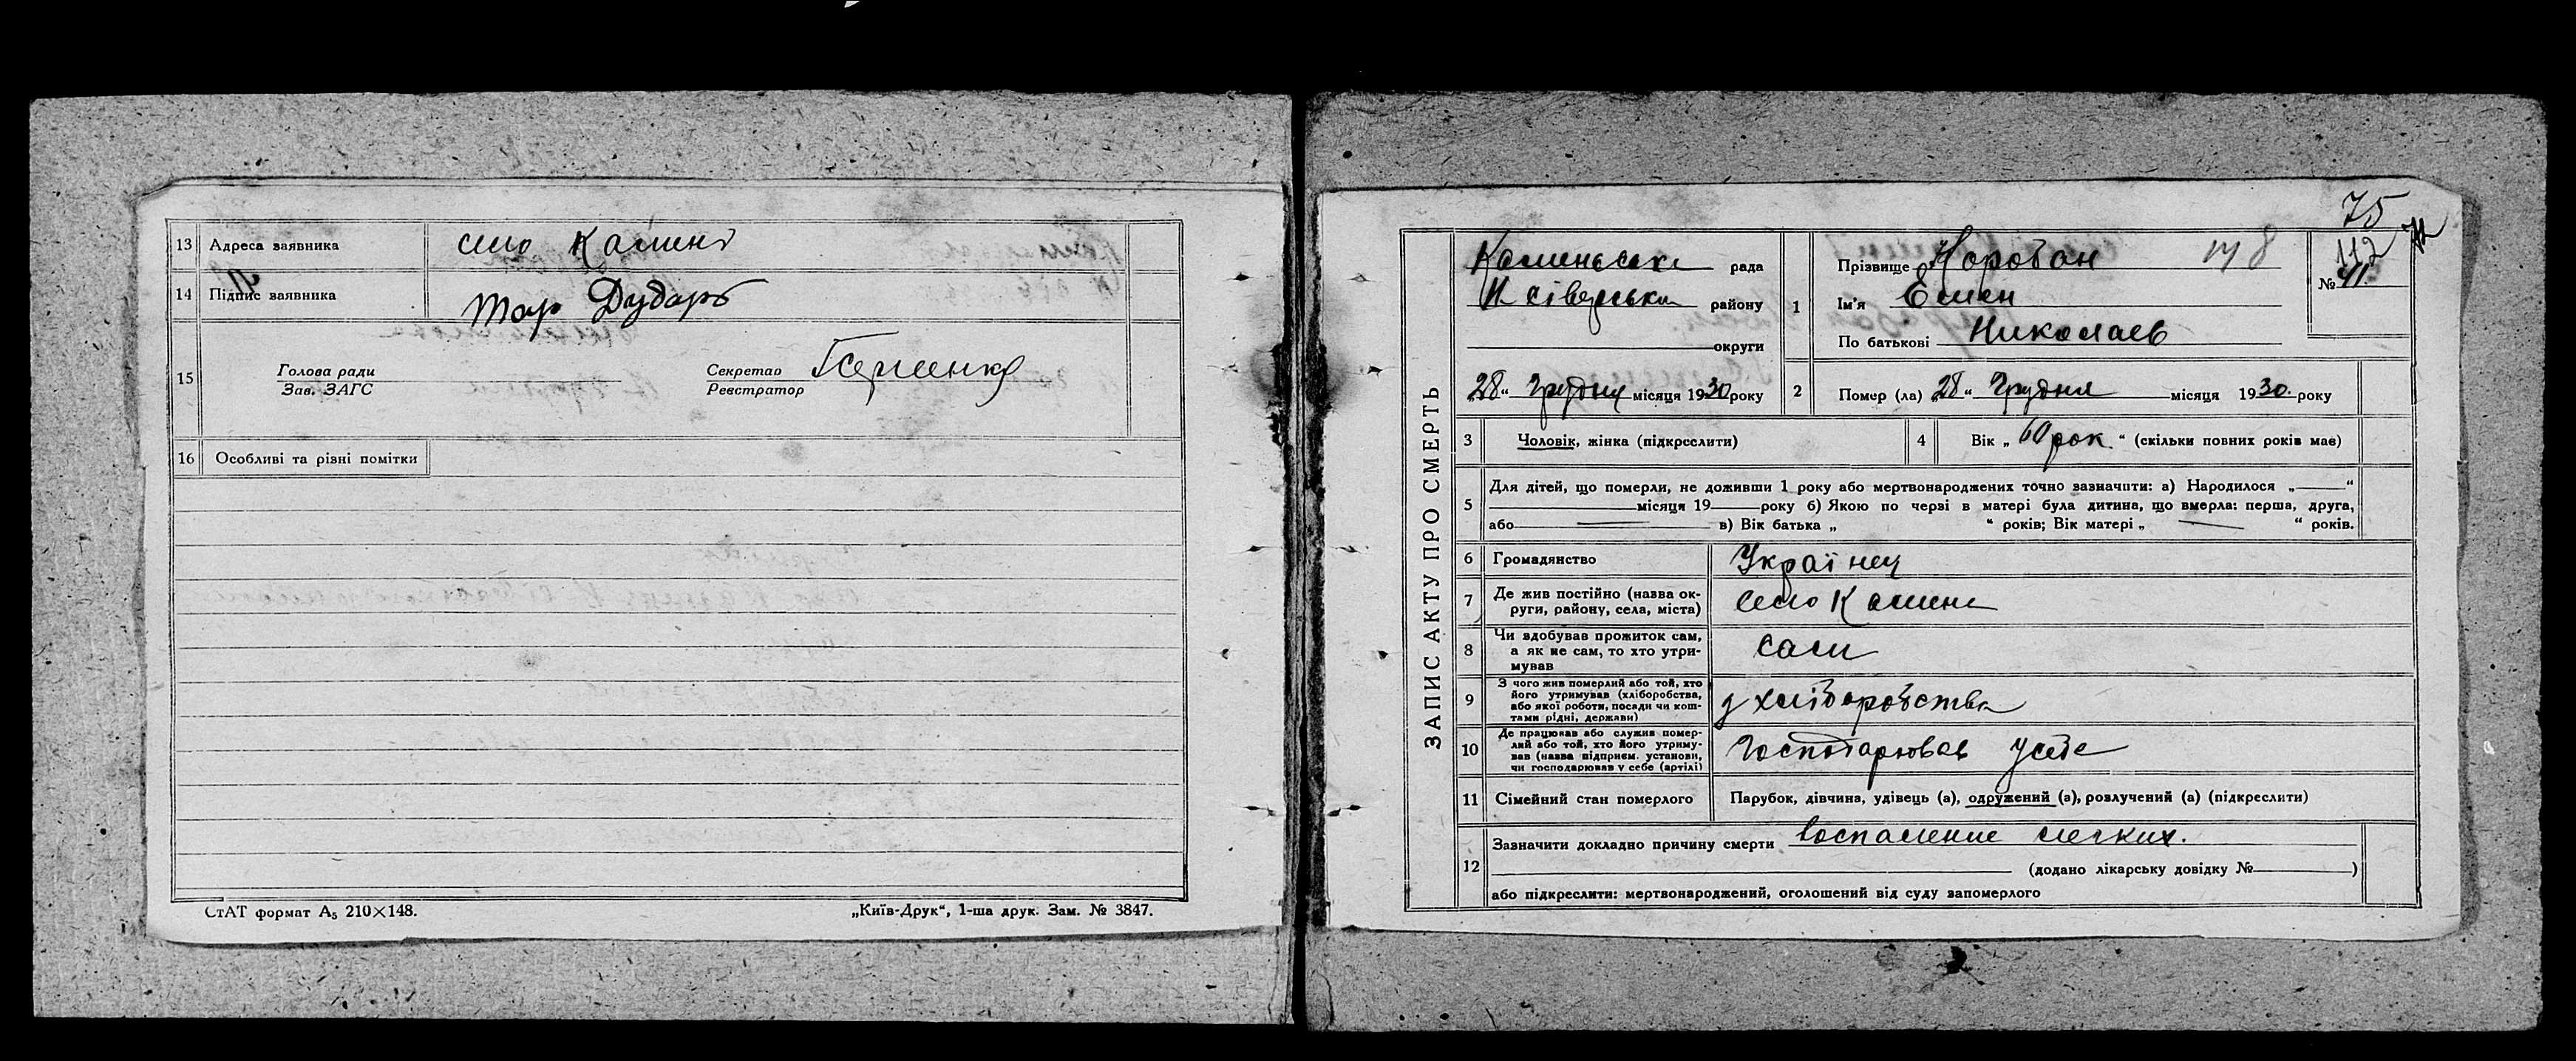 13 Адреса заявника село Камень
14 Підпис заявника Дударь
15 Голова ради
Зав. ЗАГС
Секретар
Реєстратор
16 Особливі та різні помітки
СтАТ формат А₅ 210×148.
„Київ-Друк“, 1-ша друк. Зам. № 3847.
75
ЗАПИС АКТУ ПРО СМЕРТЬ
Каменьська рада
Н сіверськи району
округи
„28“ Грудня місяця 1930 року
1 Прізвище Коробан
Ім’я Емен
По батькові Николаев
112
№ 41
2 Помер (ла) „28“ Грудня місяця 1930. року
3 Чоловік, жінка (підкреслити)
4 Вік „60 рок.“ (скільки повних років має)
5 Для дітей, що померли, не доживши 1 року або мертвонароджених точно зазначити: а) Народилося „—“
місяця 19—року б) Якою по черзі в матері була дитина, що вмерла: перша, друга,
або — в) Вік батька „ “ років; Вік матері „ — “ років.
6 Громадянство Українец
7 Де жив постійно (назва ок-
руги, району, села, міста) село Камень
8 Чи здобував прожиток сам,
а як не сам, то хто утри-
мував сам
9 З чого жив померлий або той, хто
його утримував (хліборобства,
або якої роботи, посади чи кош-
тами рідні, держави) з хліборобства
10 Де працював або служив помер-
лий або той, хто його утриму-
вав (назва підприєм. установи,
чи господарював у себе (артілі) Господарював усебе
11 Сімейний стан померлого Парубок, дівчина, удівець (а), одружений (а), розлучений (а) (підкреслити)
12 Зазначити докладно причину смерти воспаление легких.
(додано лікарську довідку № )
або підкреслити: мертвонароджений, оголошений від суду запомерлого